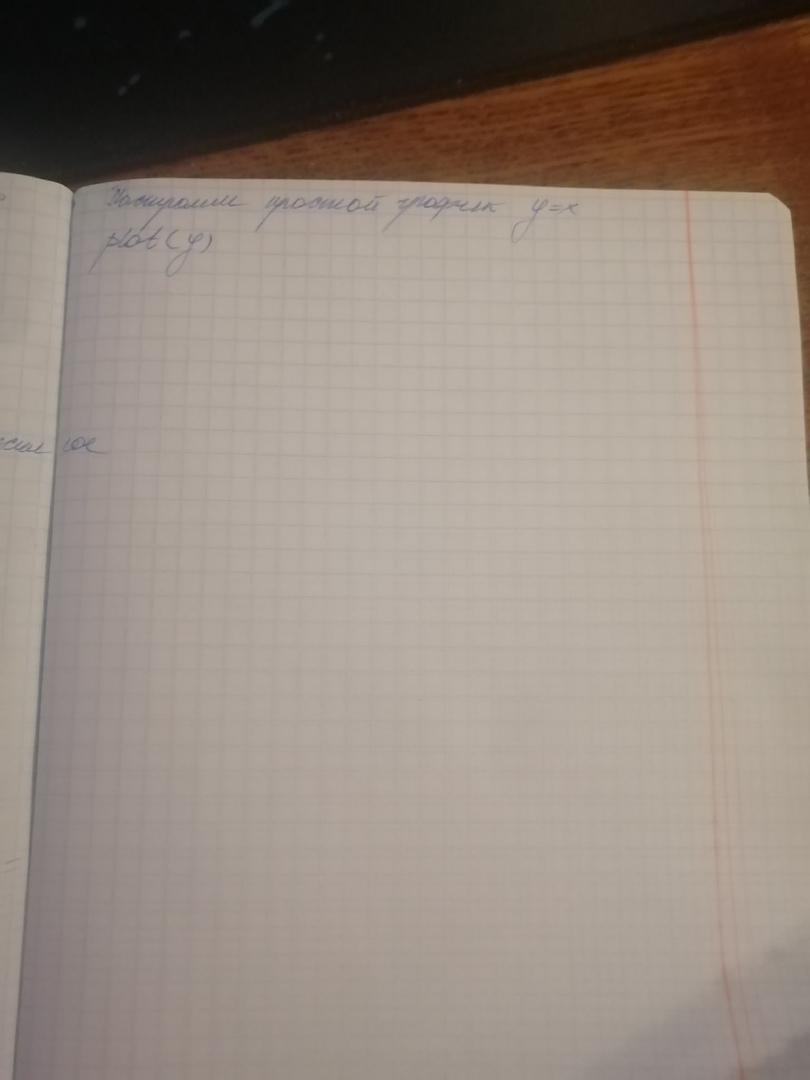 Построим простой график y=x
plot(y)